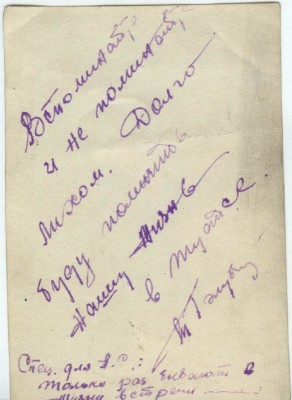 Вспоминайте
и не поминайте
лихом. Долго
буду помнить
нашу жизнь
в Туапсе
Спец. для А.С.:
только раз бывают в
жизни встречи